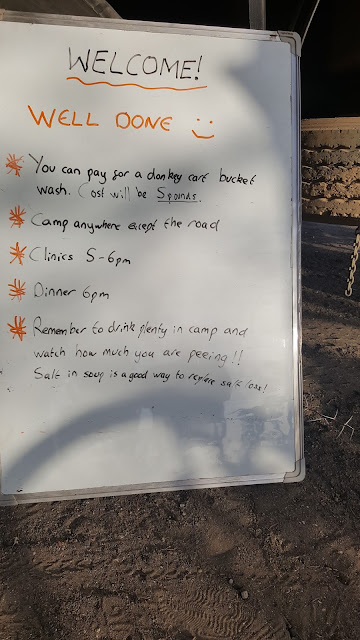 WELCOME!
WELL DONE :)
* You can pay for a donkey cart bucket
wash. Cost will be 5 pounds.
* Camp anywhere except the road
* Clinics 5-6pm
* Dinner 6pm
* Remember to drink plenty in camp and
watch how much you are peeing!!
Salt in soup is a good way to replace salt loss!